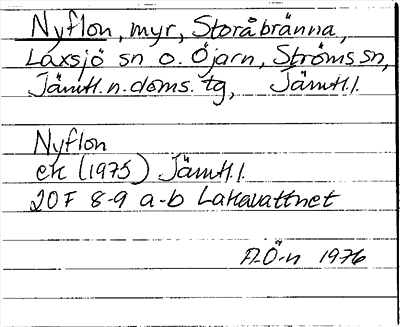 Nyflon, myr, Storåbränna,
Laxsjö sn o. Öjarn, Ströms sn,
Jämtl. n. doms. tg, Jämtl. l.
Nyflon
ek (1975) Jämtl. l.
20F 8-9 a-b Lakavattnet
A-Ö-n 1976